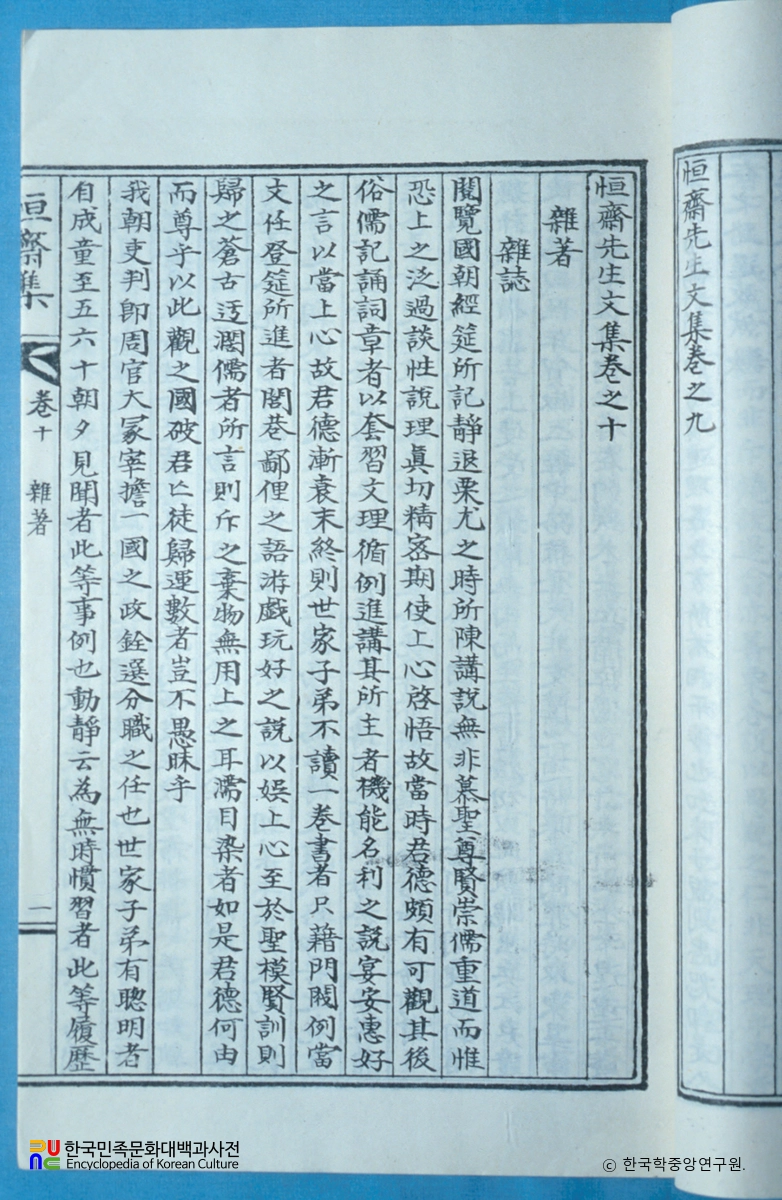 恒齋先生文集卷之九
恒齋先生文集卷之十
雜著
雜誌
閱覽國朝經筵所記靜退栗尤之時所陳講說無非慕聖尊賢崇儒重道而惟
恐上之泛過談性說理眞切精密期使上心啓悟故當時君德頗有可觀其後
俗儒記誦詞章者以套習文理循例進講其所主者機能名利之說宴安惠好
之言以當上心故君德漸衰末終則世家子弟不讀一卷書者只藉門閥例當
文任登筵所進者閭巷鄙俚之語游戱玩好之說以娛上心至於聖模賢訓則
歸之蒼古迂濶儒者所言則斥之棄物無用上之耳濡目染者如是君德何由
而尊乎以此觀之國破君亡徒歸運數者豈不愚昧乎
我朝吏判卽周官大冢宰擔一國之政銓選分職之任也世家子弟有聰明者
自成童至五六十朝夕見聞者此等事例也動靜云為無時慣習者此等履歷
恒齋集
卷十
雜著
一
한국민족문화대백과사전
Encyclopedia of Korean Culture
ⓒ 한국학중앙연구원.